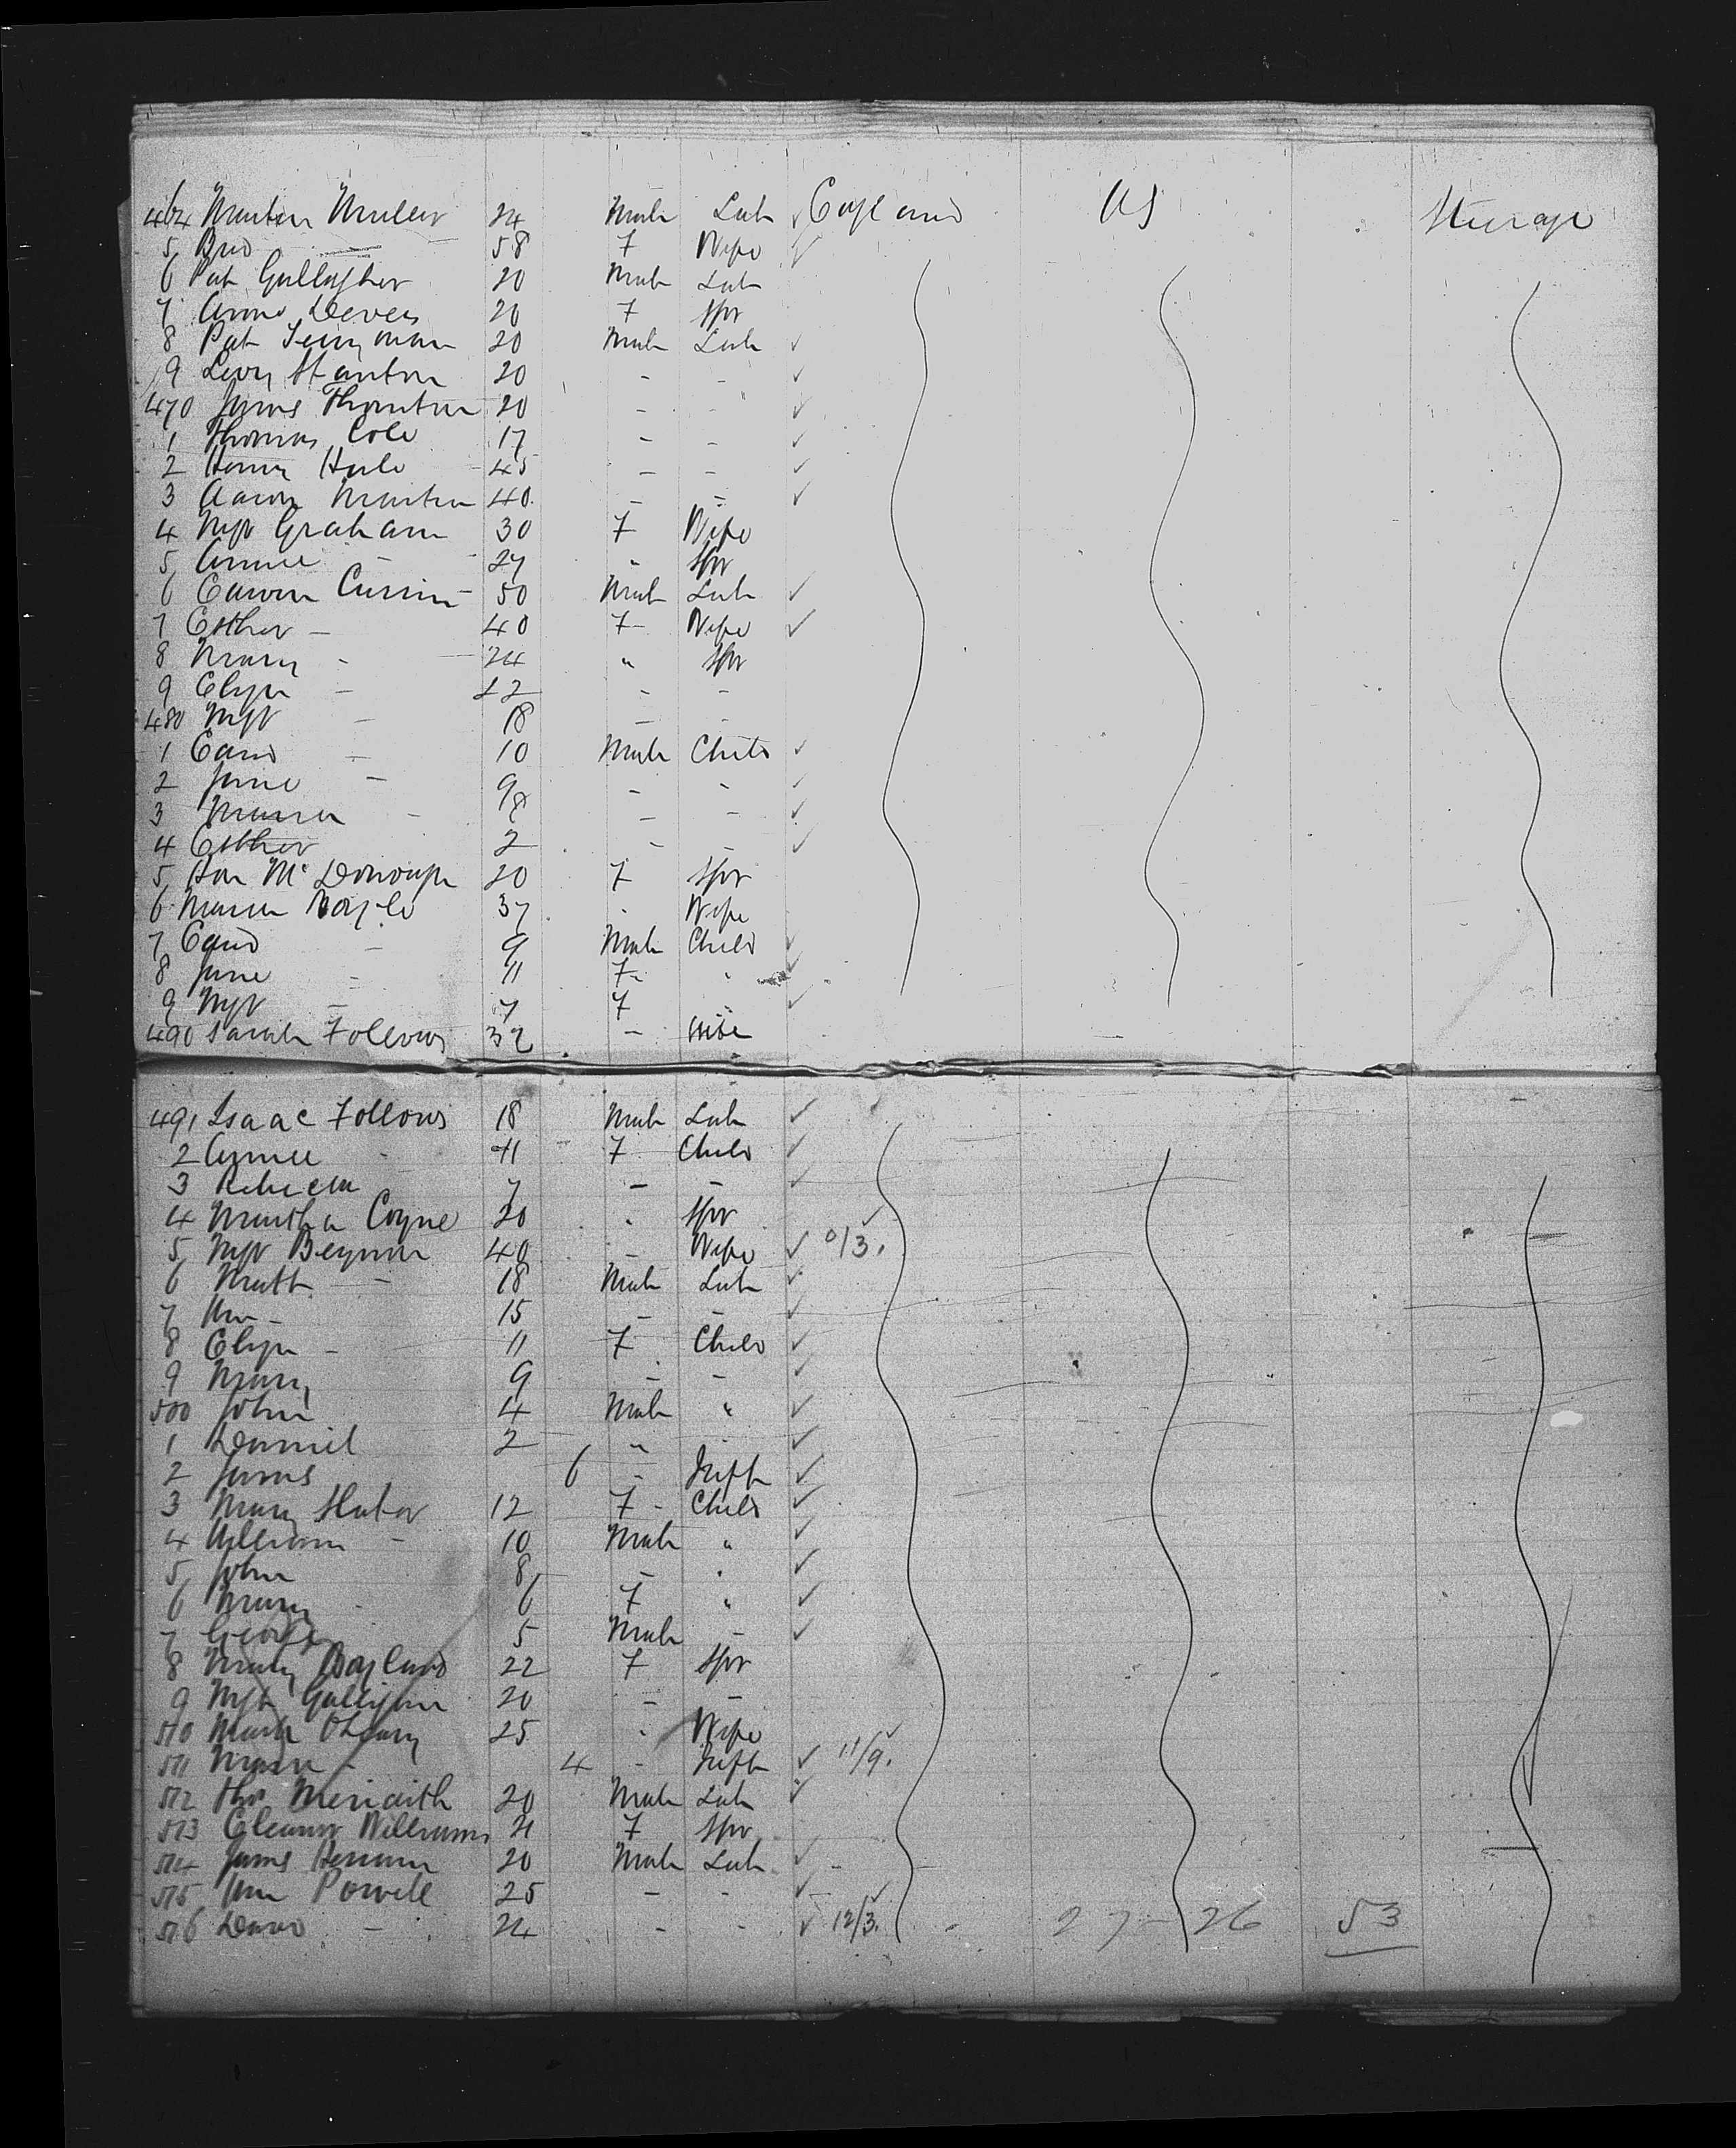 464 Martin 24 Male Lab England US Steerage
5 Brid — 58 F Wife
6 Pat Gallagher 20 Male Lab
7 Anne 20 F Spr
8 Pat 20 Male Lab
9 Levy Stanton 20 - -
470 James Thornton 20 - -
1 Thomas Cole 17 - -
2 Henry 45 - -
3 Aaron Martin 40 - -
4 Mgt Graham 30 F Wife
5 Annie - 27 " Spr
6 50 Male Lab
7 Esther - 40 F Wife
8 Mary - 24 " Spr
9 Eliza - 22 - -
480 Mgt - 18 - -
1 Edwd - 10 Male Child
2 Jane - 9 - -
3 Maria - 8 - -
4 Esther 2 - -
5 McDonough 20 F Spr
6 Maria 37 Wife
7 Edwd - 9 Male Child
8 Jane - 11 F "
9 Mgt - 7 F "
490 Sarah Follows 32 - Wife
491 Isaac Follows 18 Male Lab
2 Annie - 11 F Child
3 Rebecca 7 - -
4 Martha Coyne 20 " Spr
5 Mgt Beynon 40 - Wife 0/3.
6 Matt - 18 Male Lab
7 Wm - 15 - -
8 Eliza - 11 F Child
9 Mary 9 - -
500 John 4 Male "
1 Daniel 2 "
2 James 6 - Inft
3 Mary Slater 12 F - Child
4 William - 10 Male "
5 John 8 - "
6 Mary 6 F "
7 George 5 Male -
8 Mary Boyland 22 F Spr
9 Mgt 20 - -
510 Maria 25 " Wife
511 Maria - 4 - Inft 11/9.
512 Thos 20 Male Lab
513 Eleanor Williams 21 F Spr
514 James 20 Male Lab
515 Wm Powell 25 - -
516 - 24 - - 12/3. 27 - 26 53